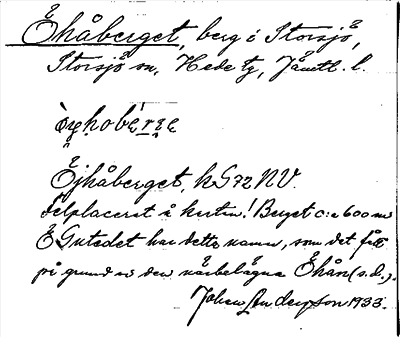 Ehåberget, berg i Storsjö,
Storsjö sn, Hede tg, Jämtl. l.
Ejhåberget, kS72NV.
Felplacerat å kartan! Berget c:a 600 m
Gutedet har detta namn, som det fått
på grund av den närbelägna Ehån (s.d.).
Johan Anderson 1933.